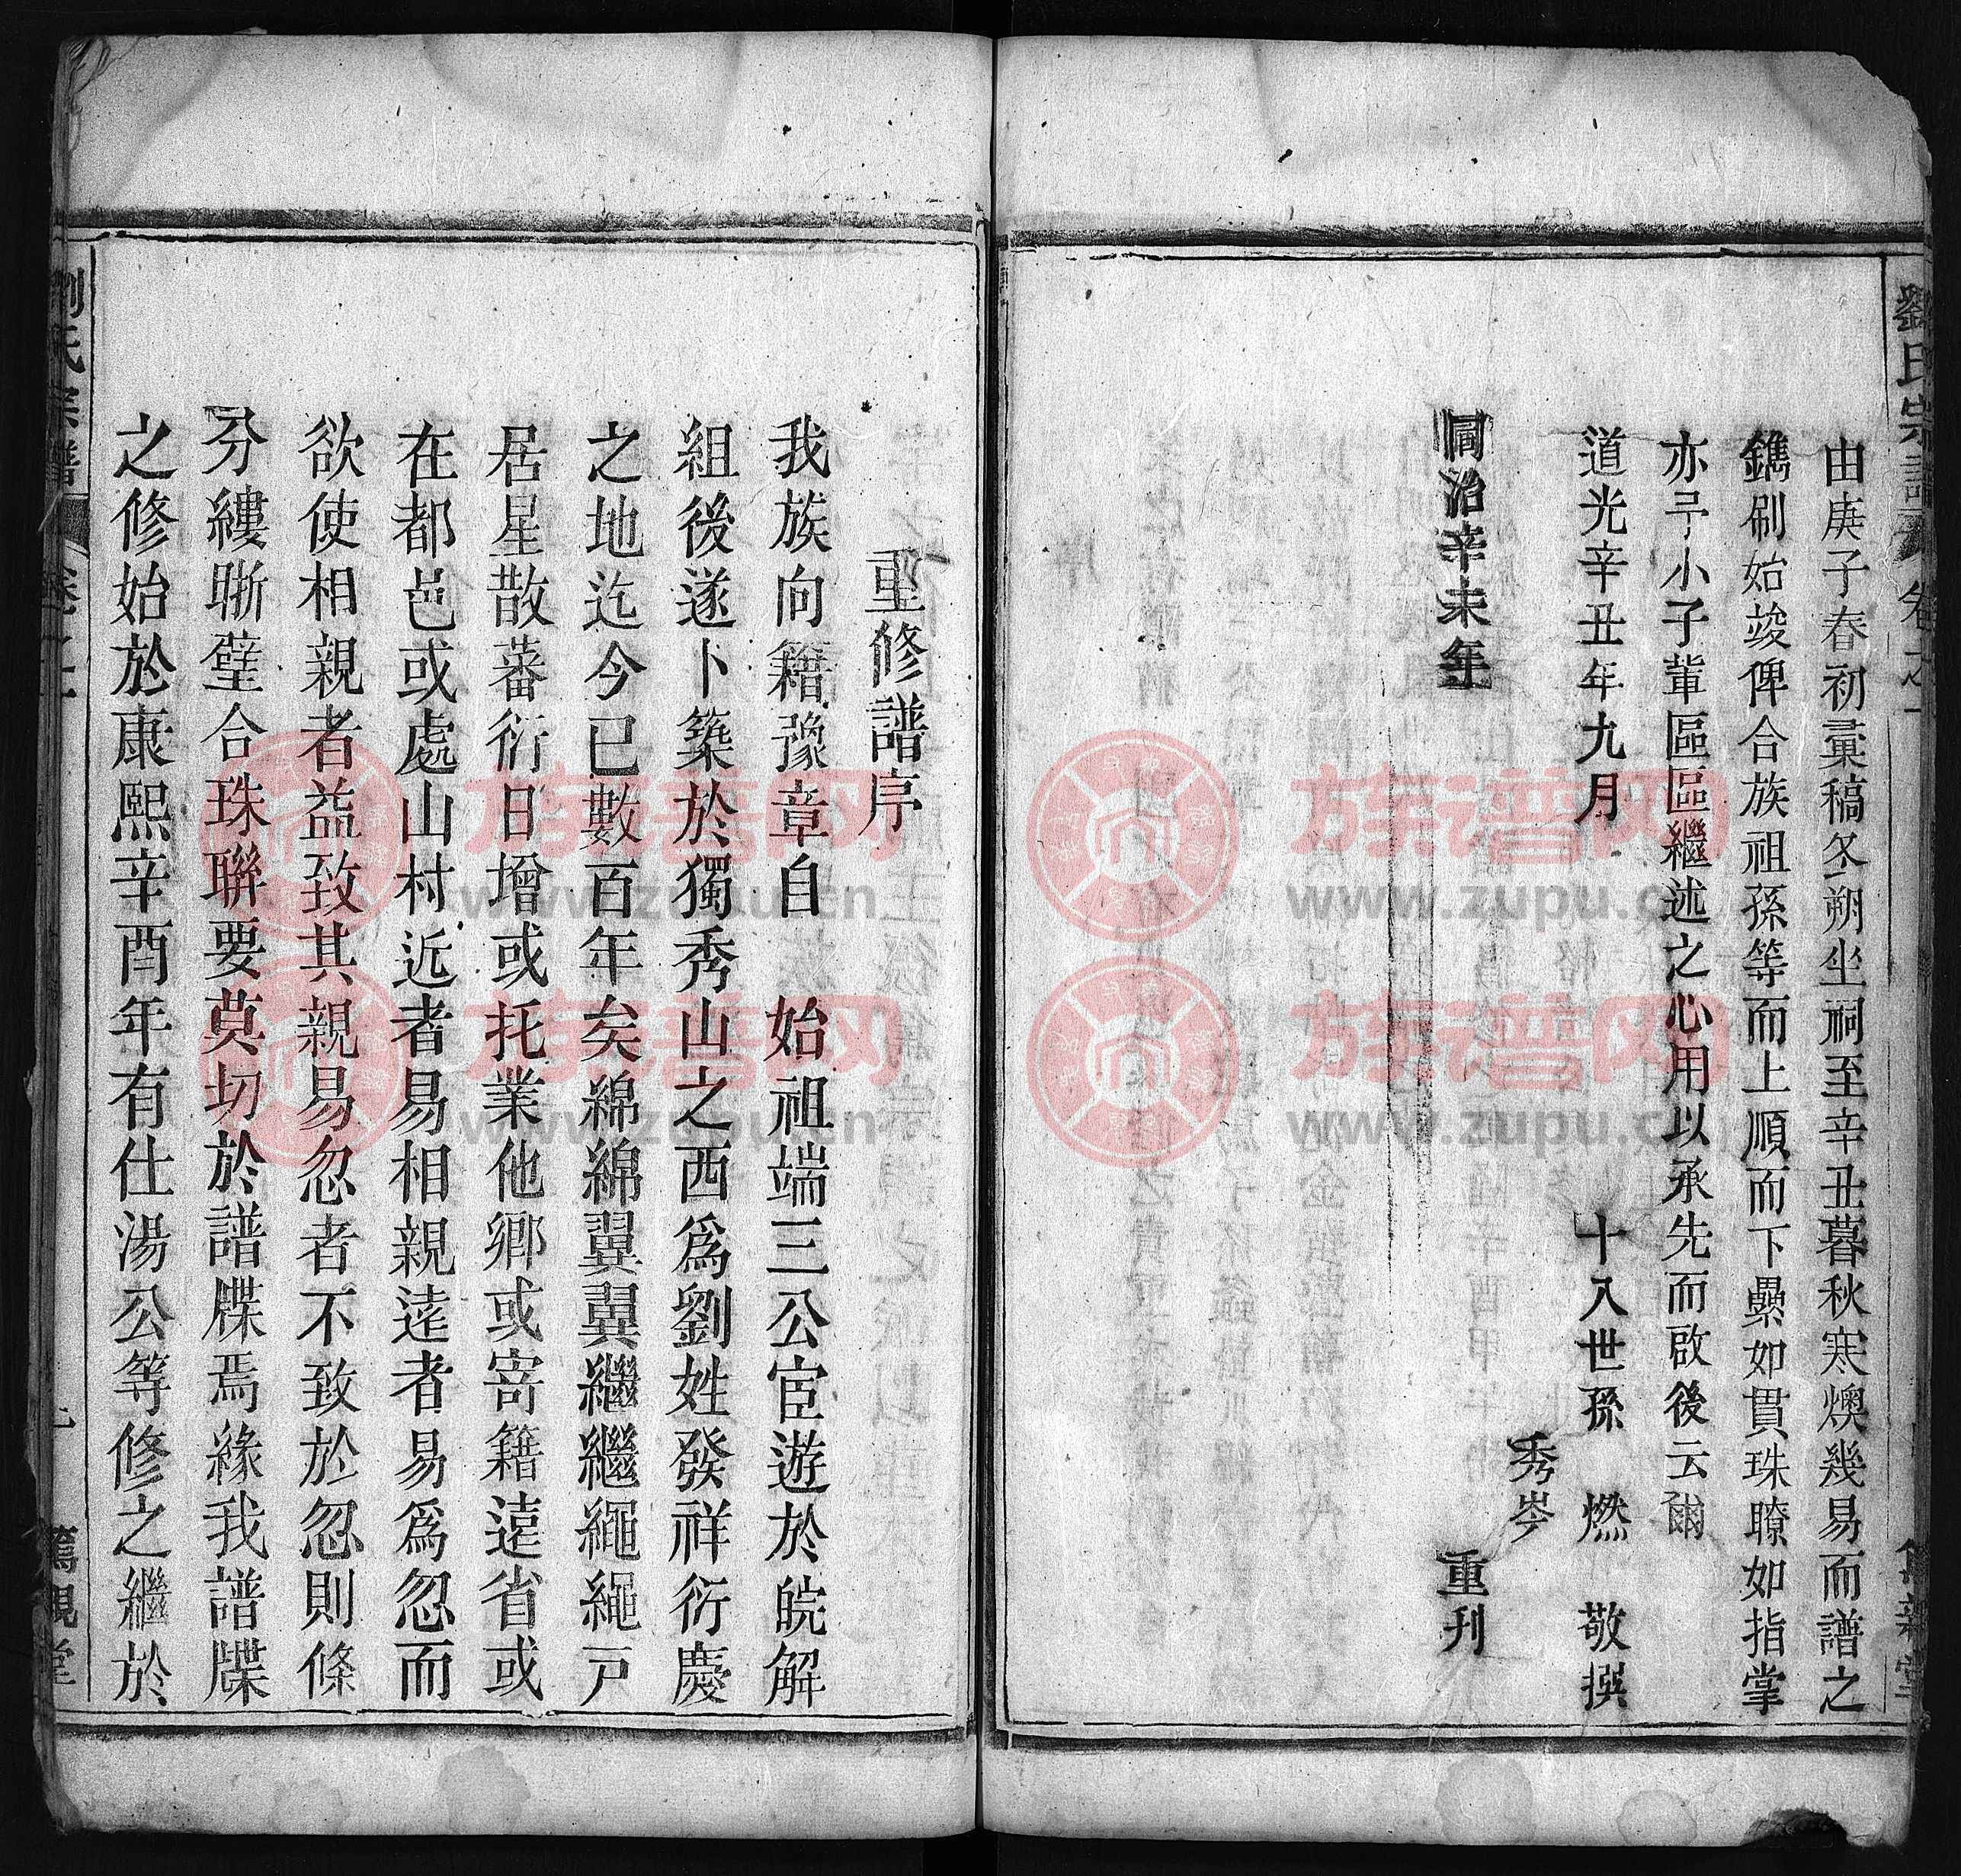 劉氏宗譜 卷之一
由庚子春初彙稿冬朔坐祠至辛丑暮秋寒燠幾易而譜之
鐫刷始竣俾合族祖孫等而上順而下纍如貫珠瞭如指掌
亦予小子輩區區繼述之心用以承先而啟後云爾
道光辛丑年九月 十八世孫 燃 敬撰
秀岑
同治辛未年 重刊
重修譜序
我族向籍豫章自 始祖端三公宦遊於皖解
組後遂卜築於獨秀山之西爲劉姓發祥衍慶
之地迄今已數百年矣綿綿翼翼繼繼繩繩戸
居星散蕃衍日增或托業他鄉或寄籍遠省或
在都邑或處山村近者易相親遠者易爲忽而
欲使相親者益致其親易忽者不致於忽則條
分縷晰璧合珠聯要莫切於譜牒焉緣我譜牒
之修始於康熙辛酉年有仕湯公等修之繼於
劉氏宗譜 卷之一 篤親堂
族谱网
www.zupu.cn
族谱网
www.zupu.cn
族谱网
www.zupu.cn
族谱网
www.zupu.cn